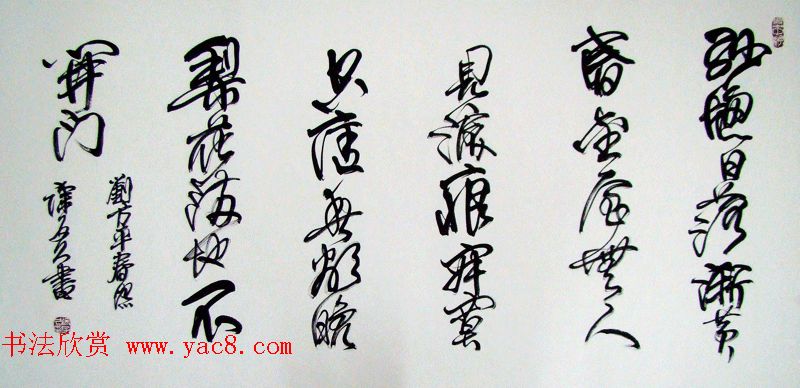 紗窗日落漸黃
昏金屋無人
見淚痕寂寞
空庭春欲晚
梨花滿地不
開門
劉方平春怨
書
书法欣赏 www.yac8.com